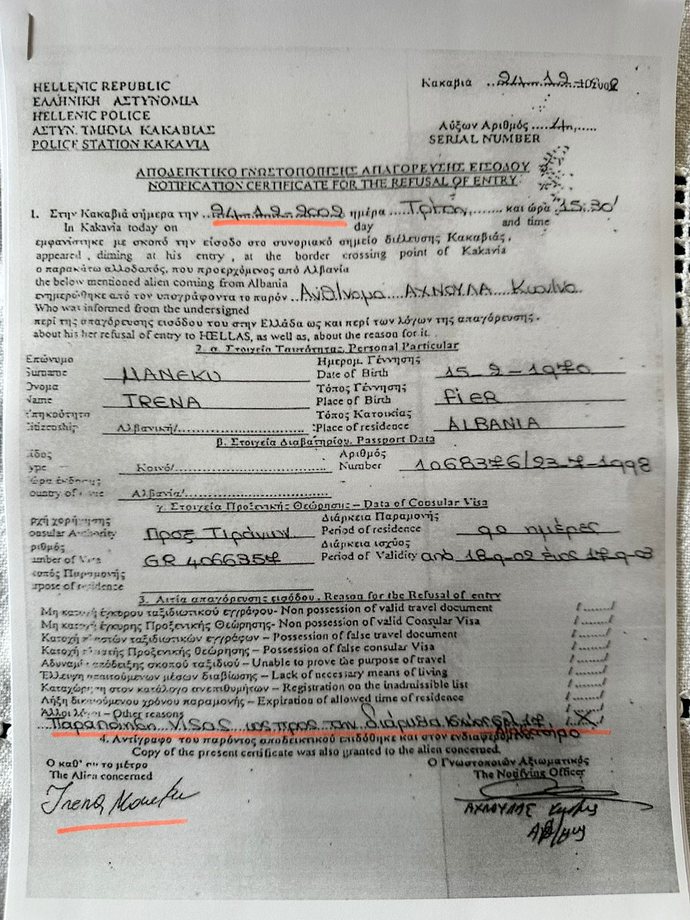 HELLENIC REPUBLIC
ΕΛΛΗΝΙΚΗ ΑΣΤΥΝΟΜΙΑ
HELLENIC POLICE
ΑΣΤΥΝ. ΤΜΗΜΑ ΚΑΚΑΒΙΑΣ
POLICE STATION KAKAVIA
Κακαβιά ..24-12-
Αύξων Αριθμός
SERIAL NUMBER
ΑΠΟΔΕΙΚΤΙΚΟ ΓΝΩΣΤΟΠΟΙΗΣΗΣ ΑΠΑΓΟΡΕΥΣΗΣ ΕΙΣΟΔΟΥ
NOTIFICATION CERTIFICATE FOR THE REFUSAL OF ENTRY
1. Στην Κακαβιά σήμερα την ..24-12-2002 ημέρα ...Τρίτη....... και ώρα 15.30'
In Kakavia today on day and time
εμφανίστηκε με σκοπό την είσοδο στο συνοριακό σημείο διέλευσης Κακαβιάς,
appeared, diming at his entry, at the border crossing point of Kakavia
ο παρακάτω αλλοδαπός, που προερχόμενος από Αλβανία
the below mentioned alien coming from Albania
ενημερώθηκε από τον υπογράφοντα το παρόν ΑΧΝΟΥΛΑ
Who was informed from the undersigned
περί της απαγόρευσης εισόδου του στην Ελλάδα ως και περί των λόγων της απαγόρευσης.
about his her refusal of entry to HELLAS, as well, as about the reason for it.
2. α. Στοιχεία Ταυτότητας, Personal Particular
Επώνυμο Ημερομ. Γέννησης
Surname MANEKU Date of Birth 15-2-1970
Όνομα Τόπος Γέννησης
Name IRENA Place of Birth FIER
Υπηκοότητα Τόπος Κατοικίας
Citizenship Αλβανική/ Place of residence ALBANIA
β. Στοιχεία Διαβατηρίου, Passport Data
Είδος Αριθμός
Type Κοινό/ Number 1068376/23-7-1998
Χώρα έκδοσης
Country of Αλβανία/
γ. Στοιχεία Προξενικής Θεώρησης – Data of Consular Visa
Αρχή χορήγησης Διάρκεια Παραμονής
Consular Authority Προξ Τιράνων Period of residence 90 ημέρες
Αριθμός Διάρκεια ισχύος
Number of Visa GR 4066357 Period of Validity από 18-9-02 έως 17-9-03
Σκοπός Παραμονής
Purpose of residence
3. Αιτία απαγόρευσης εισόδου, Reason for the Refusal of entry
Μη κατοχή έγκυρου ταξιδιωτικού εγγράφου- Non possession of valid travel document /....../
Μη κατοχή έγκυρης Προξενικής Θεώρησης- Non possession of valid Consular Visa /....../
Κατοχή πλαστών ταξιδιωτικών εγγράφων – Possession of false travel document /....../
Κατοχή πλαστής Προξενικής Θεώρησης – Possession of false consular Visa /....../
Αδυναμία απόδειξης σκοπού ταξιδιού – Unable to prove the purpose of travel /....../
Έλλειψη απαιτούμενων μέσων διαβίωσης – Lack of necessary means of living /....../
Καταχώρηση στον κατάλογο ανεπιθυμήτων – Registration on the inadmissible list /....../
Λήξη δικαιούμενου χρόνου παραμονής – Expiration of allowed time of residence /....../
Άλλοι λόγοι – Other reasons
Παραποίηση VISAS ως προς την X
4. Αντίγραφο του παρόντος αποδεικτικού επιδόθηκε και στον ενδιαφερόμενο
Copy of the present certificate was also granted to the alien concerned.
Ο Γνωστοποιών Αξιωματικός
The Alien concerned The Notifying Officer
Irena Maneku
ΑΧΝΟΥΛΑΣ